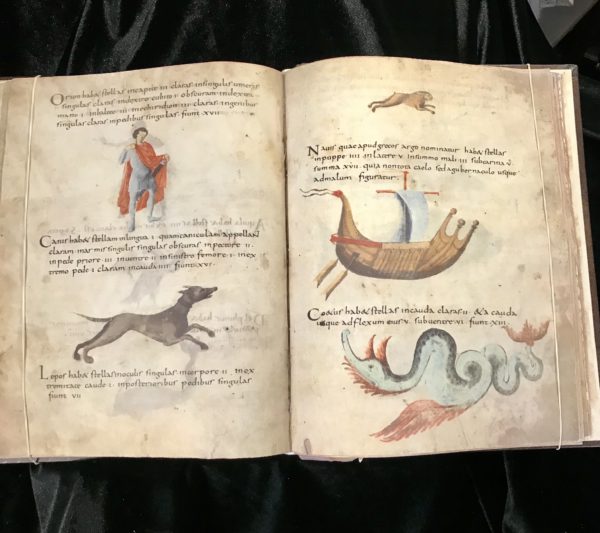 Orion hab& stellas incapite iii claras insingulis umeris
singulas claras indextro cubito i obscuram indextra
manu i inbalteo iii claras ingenibus
singulas claras inpedibus singulas fiunt xvii
Canis hab& stellam inlingua i quamcaniculam appellant
claram inarmis singulis singulas obscuras inpectore ii
inpede priore iii inuentre ii insinistro femore i inex
tremo pede i claram incauda iiii fiunt xvi
Lepos hab& stellas inoculis singulas incorpore ii inex
tremitate caude i inposterioribus pedibus singulas
fiunt vii
Nauis quae apud grecos argo nominatur hab& stellas
inpuppe iiii inlatere v insummo mali iii subcarina v
summa xvii quia nontota caelo sedagubernaculo usque
admalum figuratur
Coetus hab& stellas incauda claras ii & a cauda
usque adflexum eius v subuentre vi fiunt xiii